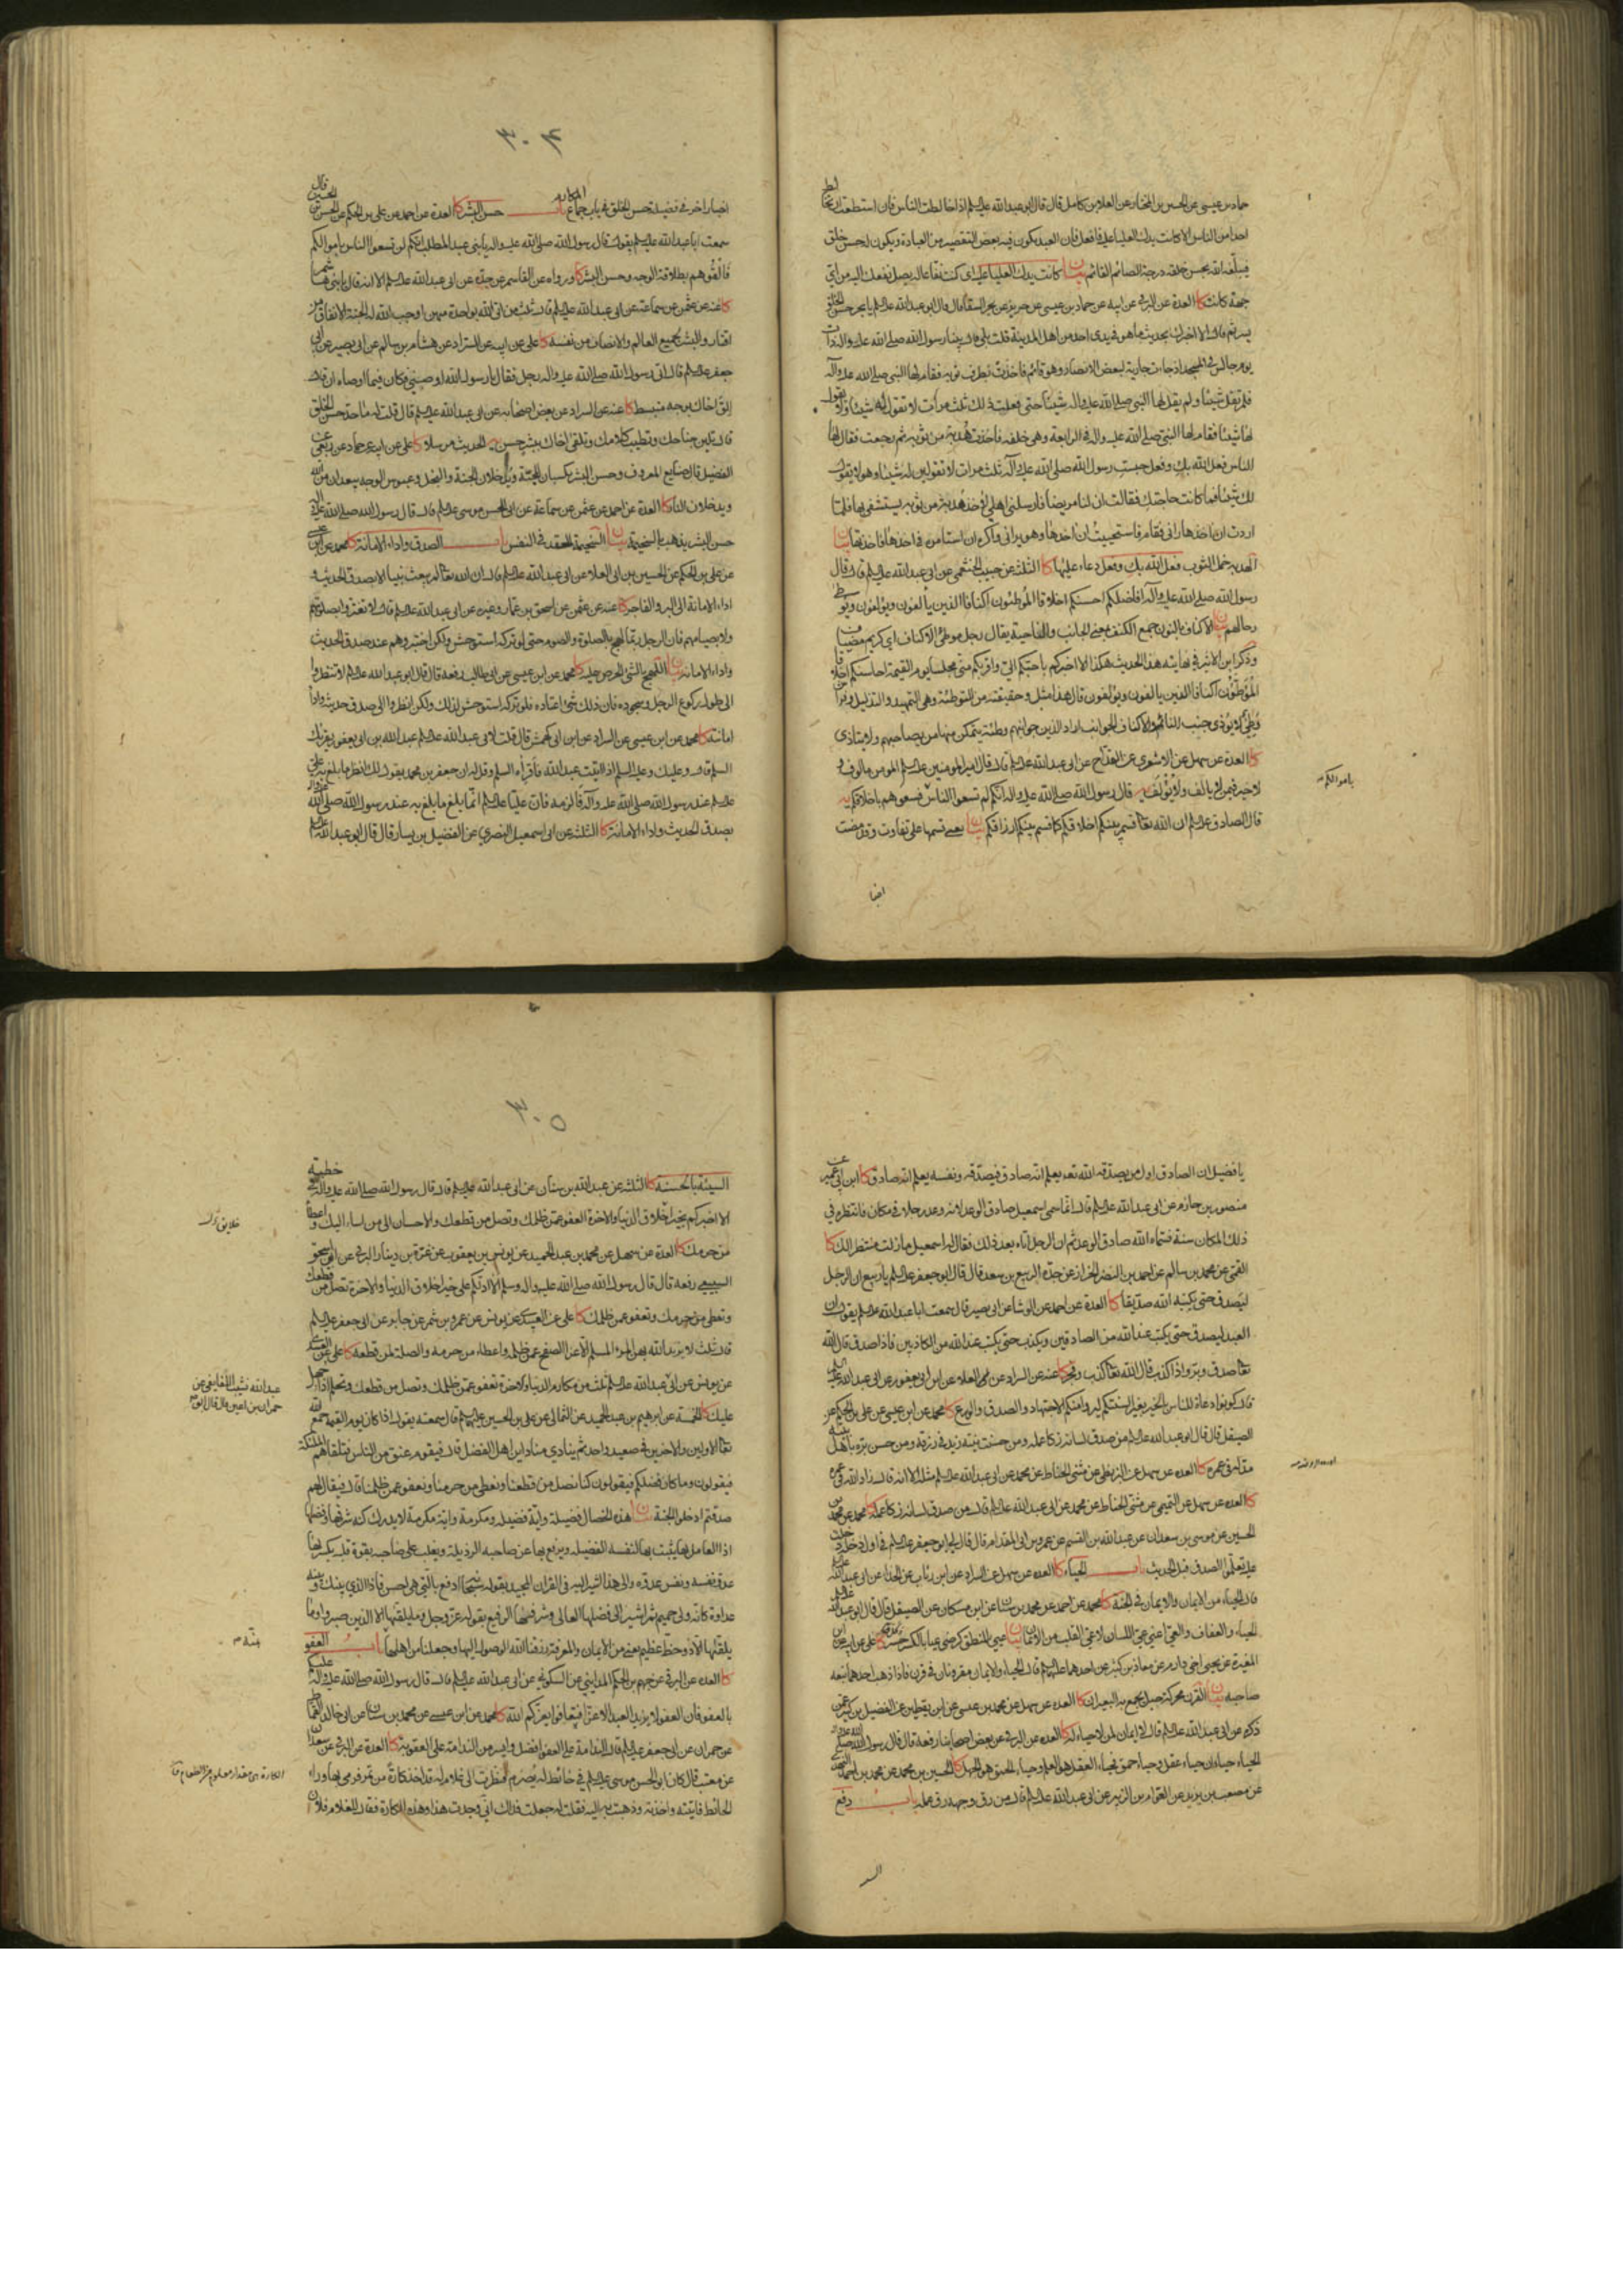 حماد بن عيسى عن الحسين بن المختار عن العلا بن كامل قال قال ابو عبد الله عليه السلم اذا خالطت الناس فان استطعت ان لا تخالط
احدا من الناس الا كانت يدك العليا عليه فافعل فان العبد يكون فيه بعض التقصير من العبادة ويكون له حسن خلق
فيبلغه الله بحسن خلقه درجة الصائم القائم بيان كانت يدك العليا عليه اي كنت نفاعا له يصل نفعك اليه من اي
جهة كانت كا العدة عن البرقي عن ابيه عن حماد بن عيسى عن حريز عن بحر السقا قال قال ابو عبد الله عليه السلم يا بحر حسن الخلق
يسر ثم قال الا اخبرك بحديث ما هو في يدي احد من اهل المدينة قلت بلى قال بينا رسول الله صلى الله عليه واله ذات
يوم جالس في المسجد اذ جاءت جارية لبعض الانصار وهو قائم فاخذت بطرف ثوبه فقام لها النبي صلى الله عليه وآله
فلم تقل شيئا ولم يقل لها النبي صلى الله عليه واله شيئا حتى فعلت ذلك ثلث مرات لا تقول له شيئا ولا يقول
لها شيئا فقام لها النبي صلى الله عليه واله في الرابعة وهي خلفه فاخذت هدبة من ثوبه ثم رجعت فقال لها
الناس فعل الله بك وفعل حبست رسول الله صلى الله عليه وآله ثلث مرات لا تقولين له شيئا ولا هو يقول
لك شيئا فما كانت حاجتك فقالت ان لنا مريضا فارسلني اهلي لاخذ هدبة من ثوبه يستشفي بها فلما
اردت ان اخذها راني فقام فاستحييت ان اخذها وهو يراني واكره ان استامره في اخذها فاخذتها بيان
الهدبة خمل الثوب وفعل الله بك وفعل دعاء عليها كا الثلثة عن حبيب الخثعمي عن ابي عبد الله عليه السلم قال قال
رسول الله صلى الله عليه وآله افاضلكم احسنكم اخلاقا الموطئون اكنافا الذين يألفون ويؤلفون وتوطأ
رحالهم بيان الاكناف بالنون جمع الكنف بمعنى الجانب والناحية يقال رجل موطئ الاكناف اي كريم مضياف
وذكر ابن الاثر في نهايته هذا الحديث هكذا الا اخبركم باحبكم الي واقربكم مني مجلسا يوم القيمة احاسنكم اخلاقا
الموطئون اكنافا الذين يالفون ويؤلفون قال هذا مثل وحقيقته من التوطئة وهي التمهيد والتذليل وفراش
وطئ لا يؤذي جنب النائم والاكناف الجوانب اراد الذين جوانبهم وطئة يتمكن منها من يصاحبهم ولا يتاذى
كا العدة عن سهل عن الاشعري عن القداح عن ابي عبد الله عليه السلم قال قال امير المؤمنين عليه السلم المومن مالوف و
لا خير فيمن لا يالف ولا يؤلف يه قال رسول الله صلى الله عليه واله انكم لم تسعوا الناس فسعوهم باخلاقكم يه
باموالكم
قال الصادق عليه السلم ان الله تعا قسم بينكم اخلاقكم كما قسم بينكم ارزاقكم بيان يعني قسمها على تفاوت وقد مضت
٣٠٤
اخبار اخر في فضيلة حسن الخلق في باب جماع المكارم باب حسن البشر كا العدة عن احمد عن علي بن الحكم عن الحسن بن الحسين قال
سمعت ابا عبد الله عليه السلم يقول قال رسول الله صلى الله عليه واله يا بني عبد المطلب انكم لن تسعوا الناس باموالكم
فالقوهم بطلاقة الوجه وحسن البشر كا ورواه عن القاسم عن جده عن ابي عبد الله عليه السلم الا انه قال يا بني هاشم
كا عنه عن عثمن عن سماعة عن ابي عبد الله عليه السلم قال ثلث من اتى الله بواحدة منهن اوجب الله له الجنة الانفاق من
اقتار والبشر لجميع العالم والانصاف من نفسه كا علي عن ابيه عن السراد عن هشام بن سالم عن ابي بصير عن ابي
جعفر عليه السلم قال اتى رسول الله صلى الله عليه واله رجل فقال يا رسول الله اوصيني فكان فيما اوصاه ان قال
الق اخاك بوجه منبسط كا عنه عن السراد عن بعض اصحابه عن ابي عبد الله عليه السلم قال قلت له ما حد حسن الخلق
قال تلين جناحك وتطيب كلامك وتلقى اخاك ببشر حسن يه الحديث مرسلا كا علي عن ابيه عن حماد عن ربعي عن
الفضيل قال صنايع المعروف وحسن البشر يكسبان المحبة ويدخلان الجنة والبخل وعبوس الوجه يبعدان من الله
ويدخلان النار كا العدة عن احمد عن عثمن عن سماعة عن ابي الحسن موسى عليه السلم قال قال رسول الله صلى الله عليه واله
حسن البشر يذهب بالسخيمة بيان السخيمة الحقد في النفس باب الصدق واداء الامانة كا محمد عن ابن عيسى
عن علي بن الحكم عن الحسين بن ابي العلا عن ابي عبد الله عليه السلم قال ان الله تعالى لم يبعث نبيا الا بصدق الحديث و
اداء الامانة الى البر والفاجر كا عنه عن عثمن عن اسحق بن عمار وغيره عن ابي عبد الله عليه السلم قال لا تغتروا بصلوتهم
ولا بصيامهم فان الرجل ربما لهج بالصلوة والصوم حتى لو تركه استوحش ولكن اختبروهم عند صدق الحديث
واداء الامانة بيان اللهج بالشئ الحرص عليه كا محمد عن ابن عيسى عن ابي طالب رفعه قال قال ابو عبد الله عليه السلم لا تنظروا
الى طول ركوع الرجل وسجوده فان ذلك شئ اعتاده فلو تركه استوحش لذلك ولكن انظروا الى صدق حديثه واداء
امانته كا محمد عن ابن عيسى عن السراد عن ابن ابي كهمش قال قلت لابي عبد الله عليه السلم عبد الله بن ابي يعفور يقرئك
السلم قال وعليك وعليه السلم اذا اتيت عبد الله فاقرأه السلم وقل له ان جعفر بن محمد يقول لك انظر ما بلغ به علي
عليه السلم عند رسول الله صلى الله عليه وآله فالزمه فان عليا عليه السلم انما بلغ ما بلغ به عند رسول الله صلى الله عليه واله
بصدق الحديث واداء الامانة كا الثلثة عن ابي اسمعيل البصري عن الفضيل بن يسار قال قال ابو عبد الله عليه السلم
يا فضيل ان الصادق اول من يصدقه الله تعه يعلم انه صادق فيصدقه ونفسه يعلم انه صادق كا ابن ابي عمير عن
منصور بن حازم عن ابي عبد الله عليه السلم قال انما سمي اسمعيل صادق الوعد لانه وعد رجلا في مكان فانتظره في
ذلك المكان سنة فسماه الله صادق الوعد ثم ان الرجل اتاه بعد ذلك فقال له اسمعيل ما زلت منتظرا لك كا
القمي عن محمد بن سالم عن احمد بن النضر الخزاز عن جده الربيع بن سعد قال قال ابو جعفر عليه السلم يا ربيع ان الرجل
ليصدق حتى يكتبه الله صديقا كا العدة عن احمد عن الوشا عن ابي بصير قال سمعت ابا عبد الله عليه السلم يقول ان
العبد ليصدق حتى يكتب عند الله من الصادقين ويكذب حتى يكتب عند الله من الكاذبين فاذا صدق قال الله
تعا صدق وبر واذا كذب قال الله تعا كذب وفجر كا عنه عن السراد عن العلاء عن ابن ابي يعفور عن ابي عبد الله عليه السلم
قال كونوا دعاة للناس بالخير بغير السنتكم ليروا منكم الاجتهاد والصدق والورع كا محمد عن ابن عيسى عن علي بن الحكم عن
الصيقل قال قال ابو عبد الله عليه السلم من صدق لسانه زكا عمله ومن حسنت نيته زيد في رزقه ومن حسن بره باهل بيته
مد له في عمره كا العدة عن سهل عن البزنطي عن مثنى الحناط عن محمد عن ابي عبد الله عليه السلم مثله الا انه قال زاد الله في عمره
كا العدة عن سهل عن التميمي عن مثنى الحناط عن محمد عن ابي عبد الله عليه السلم قال من صدق لسانه زكا عمله كا محمد عن محمد بن
الحسين عن موسى بن سعدان عن عبد الله بن القسم عن عمرو بن ابي المقدام قال قال لي ابو جعفر عليه السلم في اول دخلة دخلت
عليه تعلموا الصدق قبل الحديث باب الحياء كا العدة عن سهل عن السراد عن ابن رئاب عن الحذاء عن ابي عبد الله عليه السلم
قال الحياء من الايمان والايمان في الجنة كا محمد عن احمد عن محمد بن سنان عن ابن مسكان عن الصيقل قال قال ابو عبد الله عليه السلم
الحياء والعفاف والعي اعني عي اللسان لا عي القلب من الايمان بيان
المغيرة عن يحيى اخي دارم عن معاذ بن كثير عن احدهما عليهما السلم قال الحياء والايمان مقرونان في قرن فاذا ذهب احدهما تبعه
صاحبه بيان القرن محركة حبل يجمع به البعيران كا العدة عن سهل عن محمد بن عيسى عن ابن يقطين عن الفضيل بن كثير عمن
ذكره عن ابي عبد الله عليه السلم قال لا ايمان لمن لا حياء له كا العدة عن البرقي عن بعض اصحابنا رفعه قال قال رسول الله صلى الله عليه واله
الحياء حياءان حياء عقل وحياء حمق فحياء العقل هو العلم وحياء الحمق هو الجهل كا الحسين بن محمد عن محمد بن احمد النهدي
عن مصعب بن يزيد عن العوام بن الزبير عن ابي عبد الله عليه السلم قال من رق وجهه رق علمه باب دفع
٣٠٥
السيئة بالحسنة كا الثلثة عن عبد الله بن سنان عن ابي عبد الله عليه السلم قال قال رسول الله صلى الله عليه واله في خطبته
الا اخبركم بخير اخلاق الدنيا والاخرة العفو عمن ظلمك وتصل من قطعك والاحسان الى من اساء اليك واعطاء
خلايق
من حرمك كا العدة عن سهل عن محمد بن عبد الحميد عن يونس بن يعقوب عن غرة بن دينار الرقي عن ابي اسحق
السبيعي رفعه قال قال رسول الله صلى الله عليه واله وسلم الا ادلكم على خير اخلاق الدنيا والاخرة تصل من قطعك
وتعطي من حرمك وتعفو عمن ظلمك كا علي عن العبيدي عن يونس عن عمرو بن شمر عن جابر عن ابي جعفر عليه السلم
قال ثلث لا يزيد الله بهن المرء المسلم الا عزا الصفح عمن ظلمه واعطاء من حرمه والصلة لمن قطعه كا علي عن العبيدي
عن يونس عن ابي عبد الله عليه السلم ثلث من مكارم الدنيا والاخرة تعفو عمن ظلمك وتصل من قطعك وتحلم اذا جهل
عبد الله نشيب اللفايفي عن
حمران بن اعين قال قال ابو
عليك كا الخمسة عن ابرهيم بن عبد الحميد عن الثمالي عن علي بن الحسين عليهما السلم قال سمعته يقول اذا كان يوم القيمة جمع الله
تعا الاولين والاخرين في صعيد واحد ثم ينادي مناد اين اهل الفضل قال فيقوم عنق من الناس فتلقاهم الملئكة
فيقولون وما كان فضلكم فيقولون كنا نصل من قطعنا ونعطي من حرمنا ونعفو عمن ظلمنا قال فيقال لهم
صدقتم ادخلوا الجنة بيان هذه الخصال فضيلة واية فضيلة ومكرمة واية مكرمة لا يدرك كنه شرفها وفضلها
اذ العامل بها يثبت بها لنفسه الفضيلة ويرفع بها عن صاحبه الرذيلة ويغلب على صاحبه بقوة قلبه يكسر بها
عدو نفسه ونفس عدوه والى هذا اشير في القران المجيد بقوله سبحانه ادفع بالتي هي احسن فاذا الذي بينك وبينه
عداوة كانه ولي حميم ثم اشير الى فضلها العالي وشرفها الرفيع بقوله عز وجل وما يلقيها الا الذين صبروا وما
يلقيها الا ذو حظ عظيم يعني من الايمان والمعرفة رزقنا الله الوصول اليها وجعلنا من اهلها باب العفو
كا العدة عن البرقي عن جهم بن الحكم المدايني عن السكوني عن ابي عبد الله عليه السلم قال قال رسول الله صلى الله عليه واله عليكم
بالعفو فان العفو لا يزيد العبد الا عزا فتعافوا يعزكم الله كا محمد عن ابن عيسى عن محمد بن سنان عن ابي خالد القماط
عن حمران عن ابي جعفر عليه السلم قال الندامة على العفو افضل وايسر من الندامة على العقوبة كا العدة عن البرقي عن سعدان
عن معتب قال كان ابو الحسن موسى عليه السلم في حائط له يصرم فنظرت الى غلام له قد اخذ كارة من تمر فرمى بها وراء
الكارة هي مقدار معلوم من الطعام
الحائط فاتيته واخذته وذهبت به اليه فقلت له جعلت فداك اني وجدت هذا وهذه الكارة فقال للغلام فلان